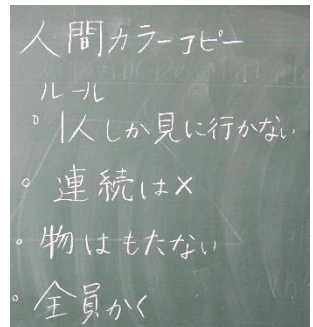 人間カラーコピー
ルール
。1人しか見に行かない
。連続は×
。物はもたない
。全員かく